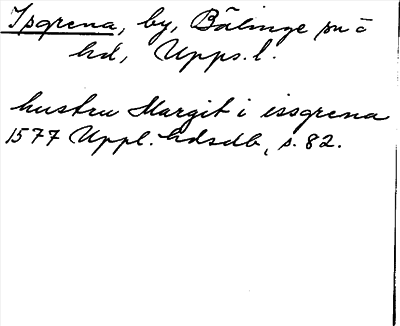 Isgrena, by, Bälinge sn o
hd, Upps. l.
hustru Margit i issgrena
1577 Uppl. hdsdb, s. 82.